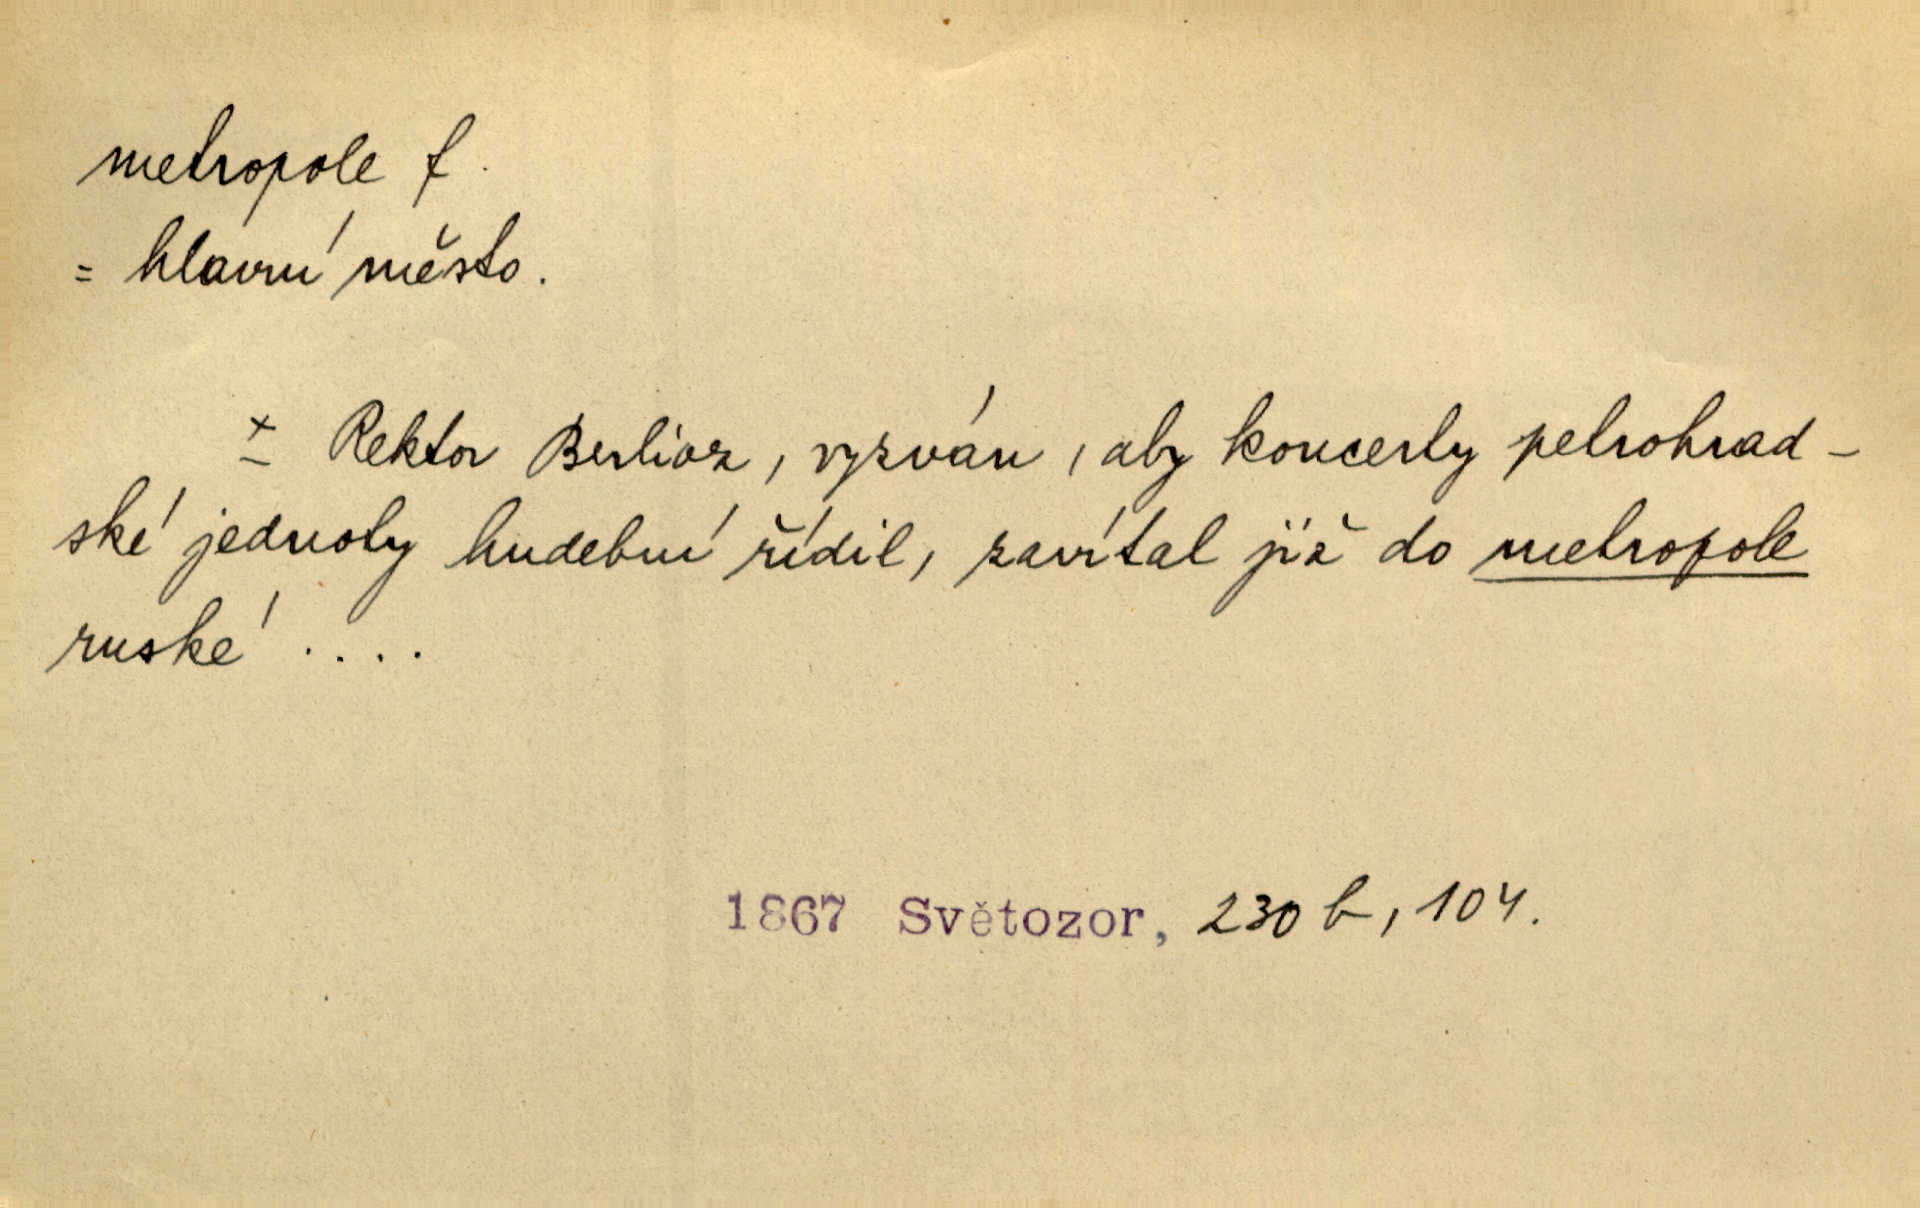 metropole f.
= hlavní město.
± Rektor Berlioz, vyzván, aby koncerty petrohrad-
ské jednoty hudební řídil, zavítal již do metropole
ruské ....
1867 Světozor, 230 b, 104.